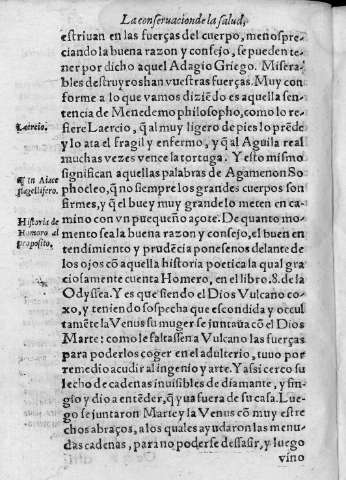 La conseruacion de la salud,
estriuan en las fuerças del cuerpo, menospre-
ciando la buena razon y consejo, se pueden te-
ner por dicho aquel Adagio Griego. Misera-
bles destruyros han vuestras fuerças. Muy con
forme a lo que vamos diziẽdo es aquella sen-
tencia de Menedemo philosopho, como lo re-
Laercio.
fiere Laercio, q̃ al muy ligero de pies lo prẽde
y lo ata el fragil y enfermo, y q̃ al Aguila real
muchas vezes vence la tortuga. Y esto mismo
significan aquellas palabras de Agamenon So
in Aiace
flagellifero.
phocleo, q̃ no siempre los grandes cuerpos son
firmes, y q̃ el buey muy grande lo meten en ca-
Historia de
Homero al
proposito.
mino con vn pequeño açote. De quanto mo-
mento sea la buena razon y consejo, el buen en
tendimiento y prudẽcia ponesenos delante de
los ojos cõ aquella historia poetica la qual gra
ciosamente cuenta Homero, en el libro. 8. de la
Odyssea. Y es que siendo el Dios Vulcano co-
xo, y teniendo sospecha que escondida y occul
tamẽte la Venus su muger se juntaua cõ el Dios
Marte: como le faltassen a Vulcano las fuerças
para poderlos coger en el adulterio, tuuo por
remedio acudir al ingenio y arte. Y assi cerco su
lecho de cadenas inuisibles de diamante, y fin-
gio y dio a entẽder, q̃ yua fuera de su casa. Lue-
go se juntaron Marte y la Venus cõ muy estre
chos abraços, a los quales ayudaron las menu-
das cadenas, para no poderse dessasir, y luego
vino